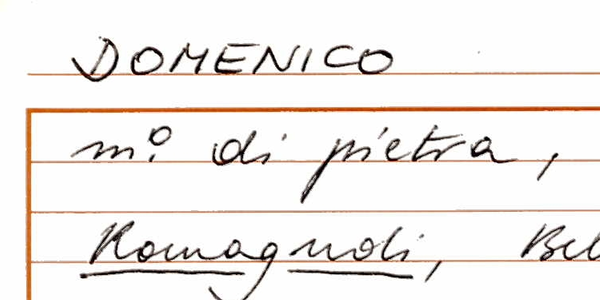 DOMENICO
m.º di pietra,
Romagnoli,